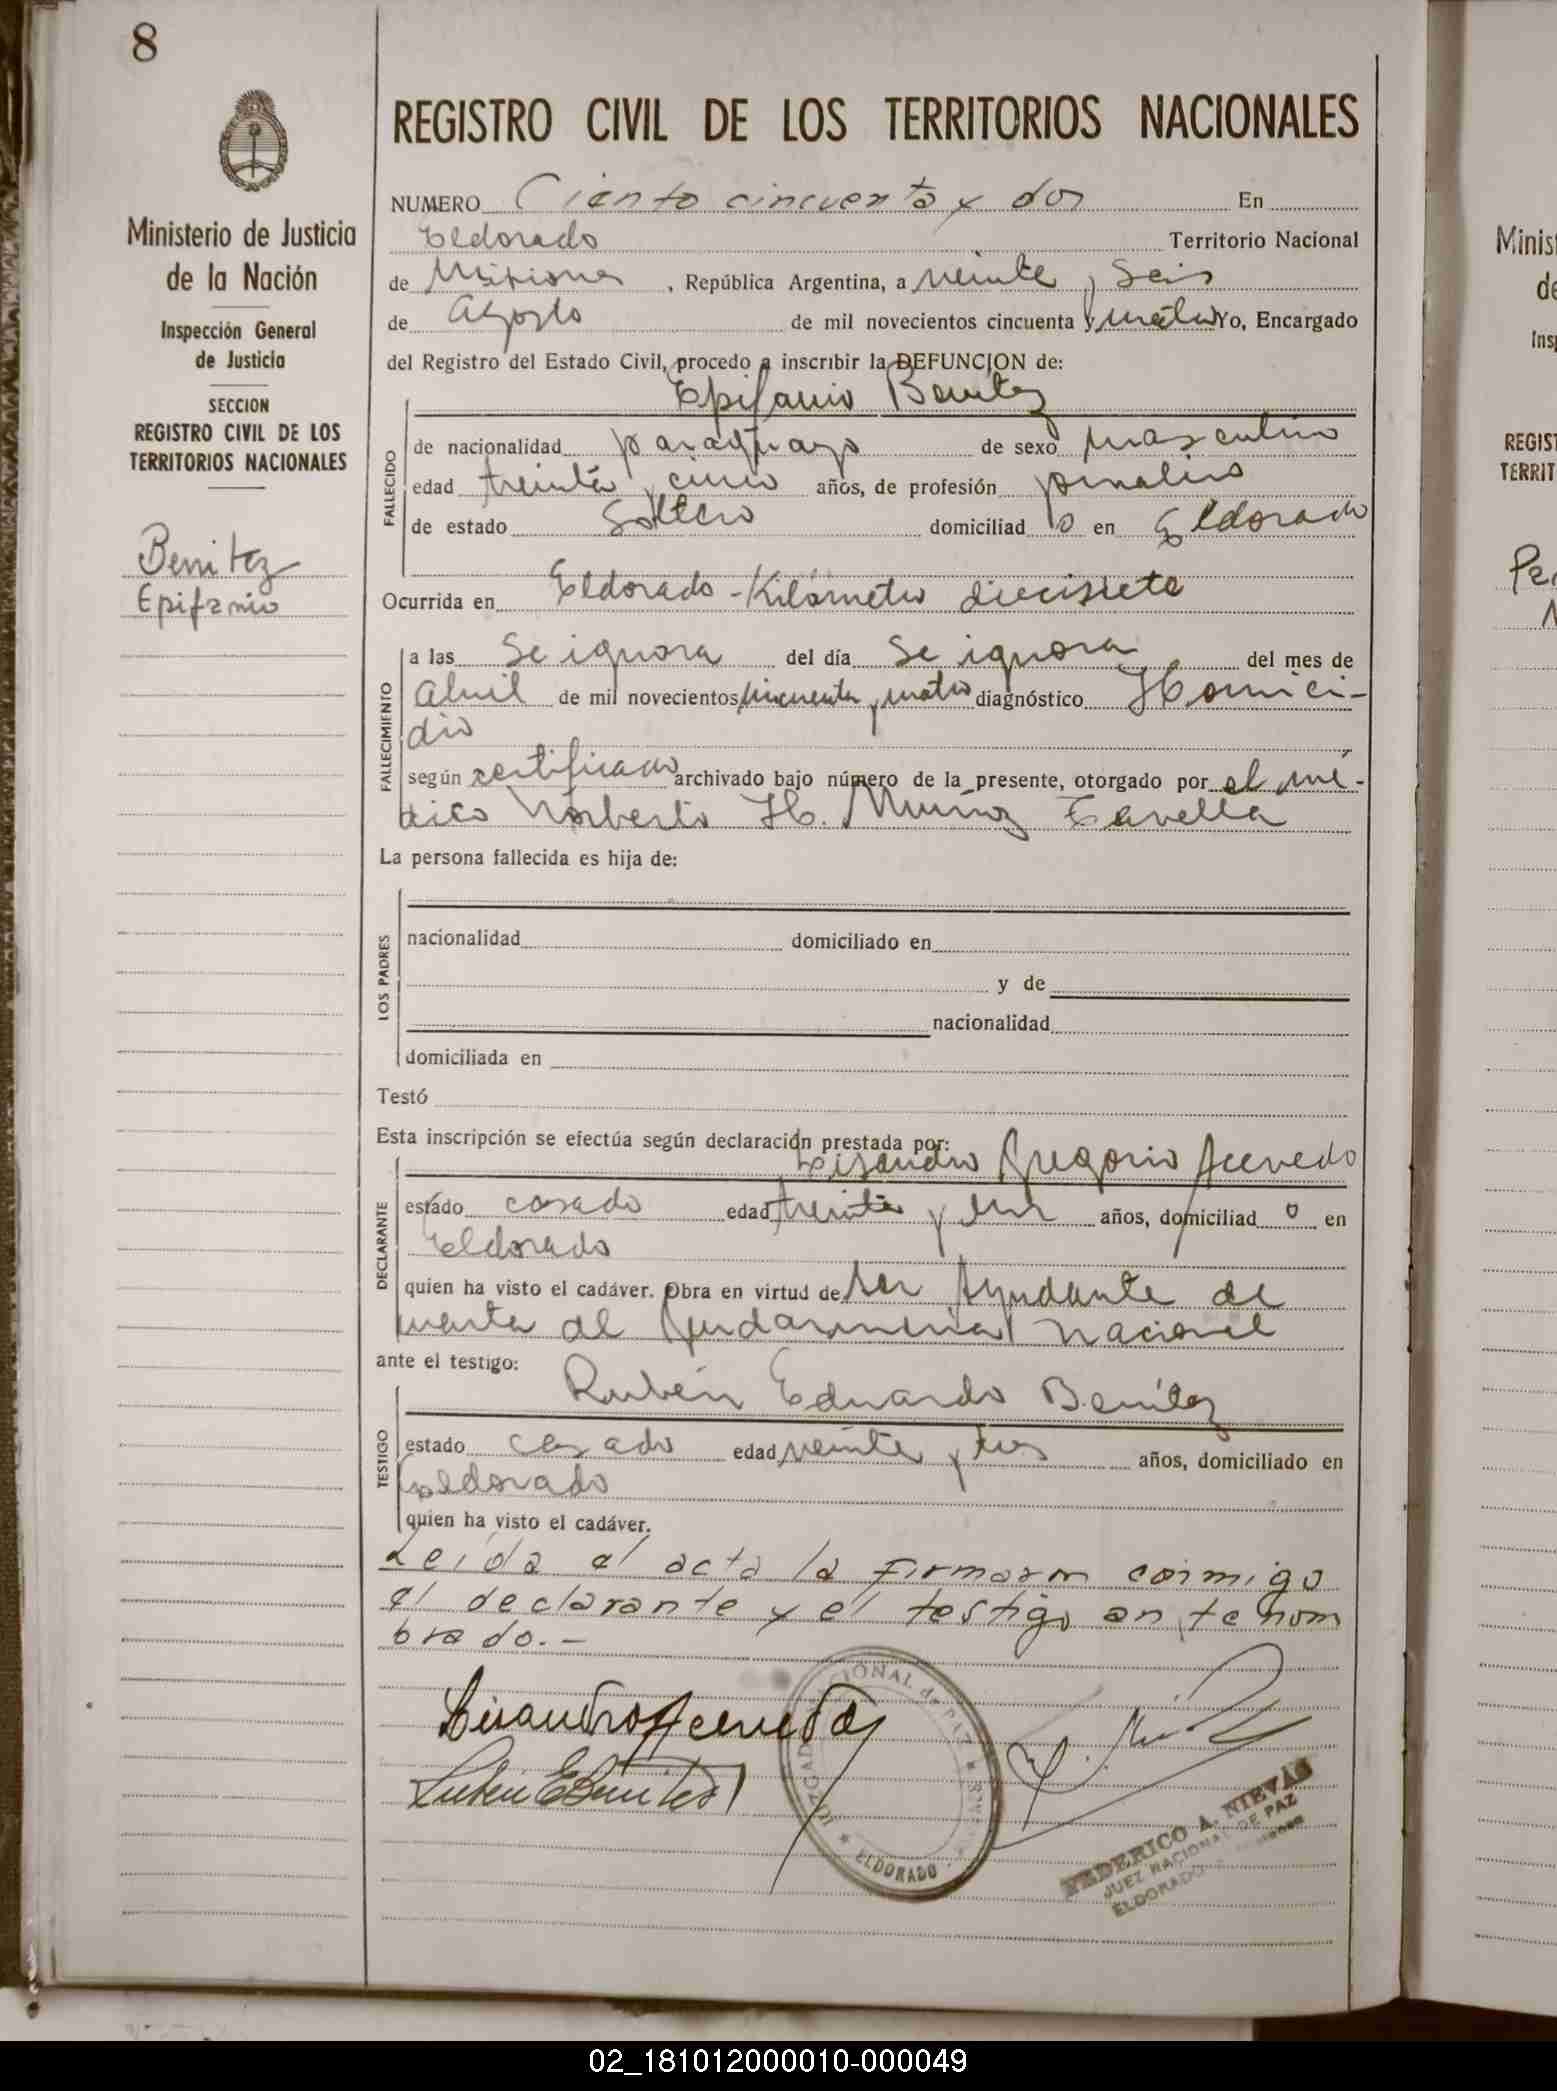 8
Ministerio de Justicia
de la Nación
Inspección General
de Justicia
SECCION
REGISTRO CIVIL DE LOS
TERRITORIOS NACIONALES
Benitez
Epifanio
REGISTRO CIVIL DE LOS TERRITORIOS NACIONALES
NUMERO Ciento cincuenta y dos En
Eldorado Territorio Nacional
de Misiones, República Argentina, a veinte y seis
de Agosto de mil novecientos cincuenta y cuatro Yo, Encargado
del Registro del Estado Civil, procedo a inscribir la DEFUNCION de:
Epifanio Benitez
FALLECIDO
de nacionalidad paraguayo de sexo masculino
edad treinta y cinco años, de profesión
de estado Soltero domiciliad o en Eldorado
Ocurrida en Eldorado - Kilómetro diecisiete
FALLECIMIENTO
a las Se ignora del día Se ignora del mes de
Abril de mil novecientos cincuenta y cuatro diagnóstico Homici-
dio
según certificado archivado bajo número de la presente, otorgado por el mé-
dico Norberto H. Muñoz
La persona fallecida es hija de:
LOS PADRES
nacionalidad domiciliado en
y de
nacionalidad
domiciliada en
Testó
Esta inscripción se efectúa según declaración prestada por:
Lisandro Gregorio Acevedo
DECLARANTE
estado casado edad treinta y un años, domiciliad o en
Eldorado
quien ha visto el cadáver. Obra en virtud de ser Ayudante de
Gendarmeria Nacional
ante el testigo:
Rubén Eduardo Benítez
TESTIGO
estado casado edad veinte y tres años, domiciliado en
Eldorado
quien ha visto el cadáver.
Leída el acta la firmaron conmigo
el declarante y el testigo antenom
brado.-
Lisandro Acevedo
Ruben E Benitez
JUZGADO NACIONAL de PAZ
ELDORADO
FEDERICO A. NIEVAS
JUEZ NACIONAL DE PAZ
ELDORADO
Minis
de
Ins
REGIST
TERRIT
02_181012000010-000049